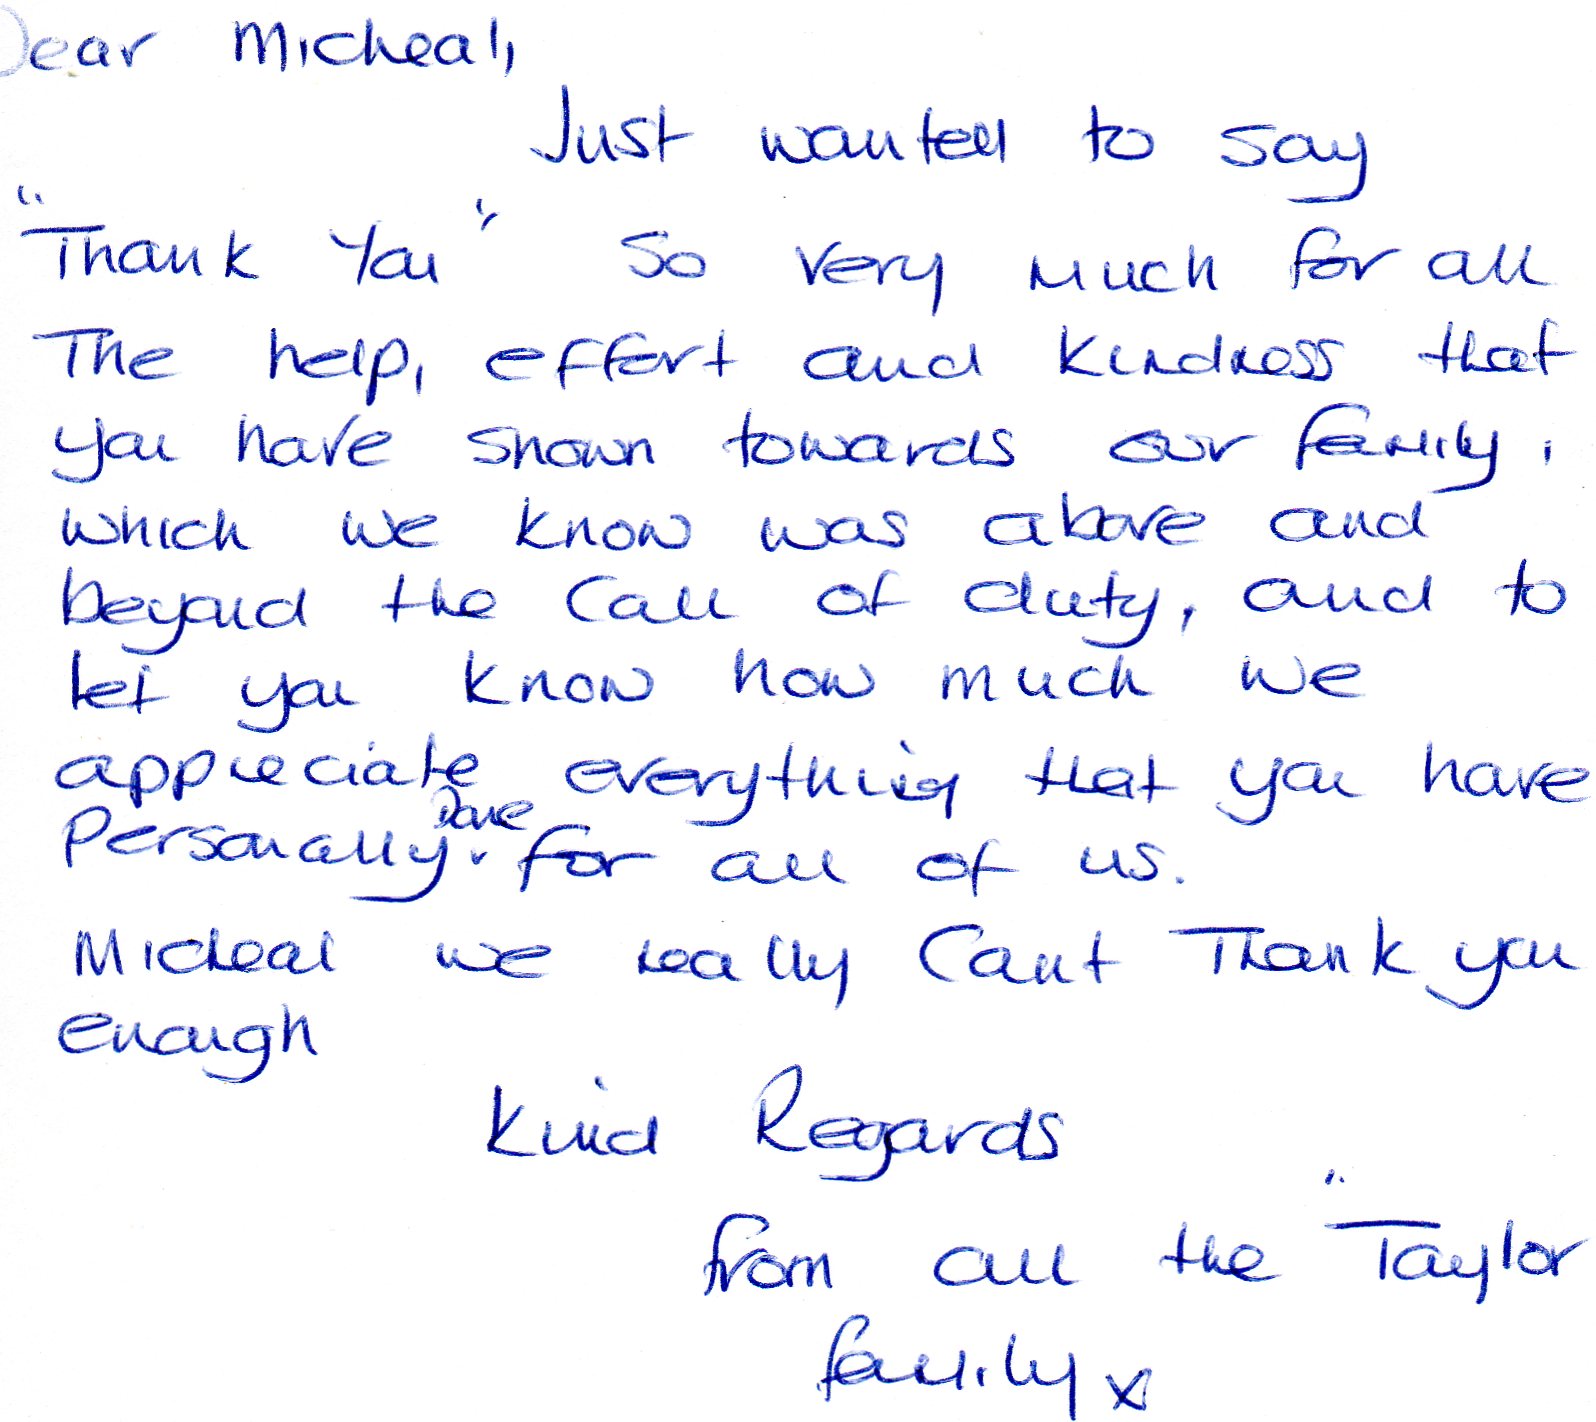 Dear Micheal,
Just wanted to say
"Thank You" So very much for all
The help, effort and kindness that
you have shown towards our family,
which we know was above and
beyond the Call of duty, and to
let you know how much we
appreciate everything that you have
Done
Personally for all of us.
Micheal we really Cant Thank you
enough
Kind Regards
from all the "Taylor
family x